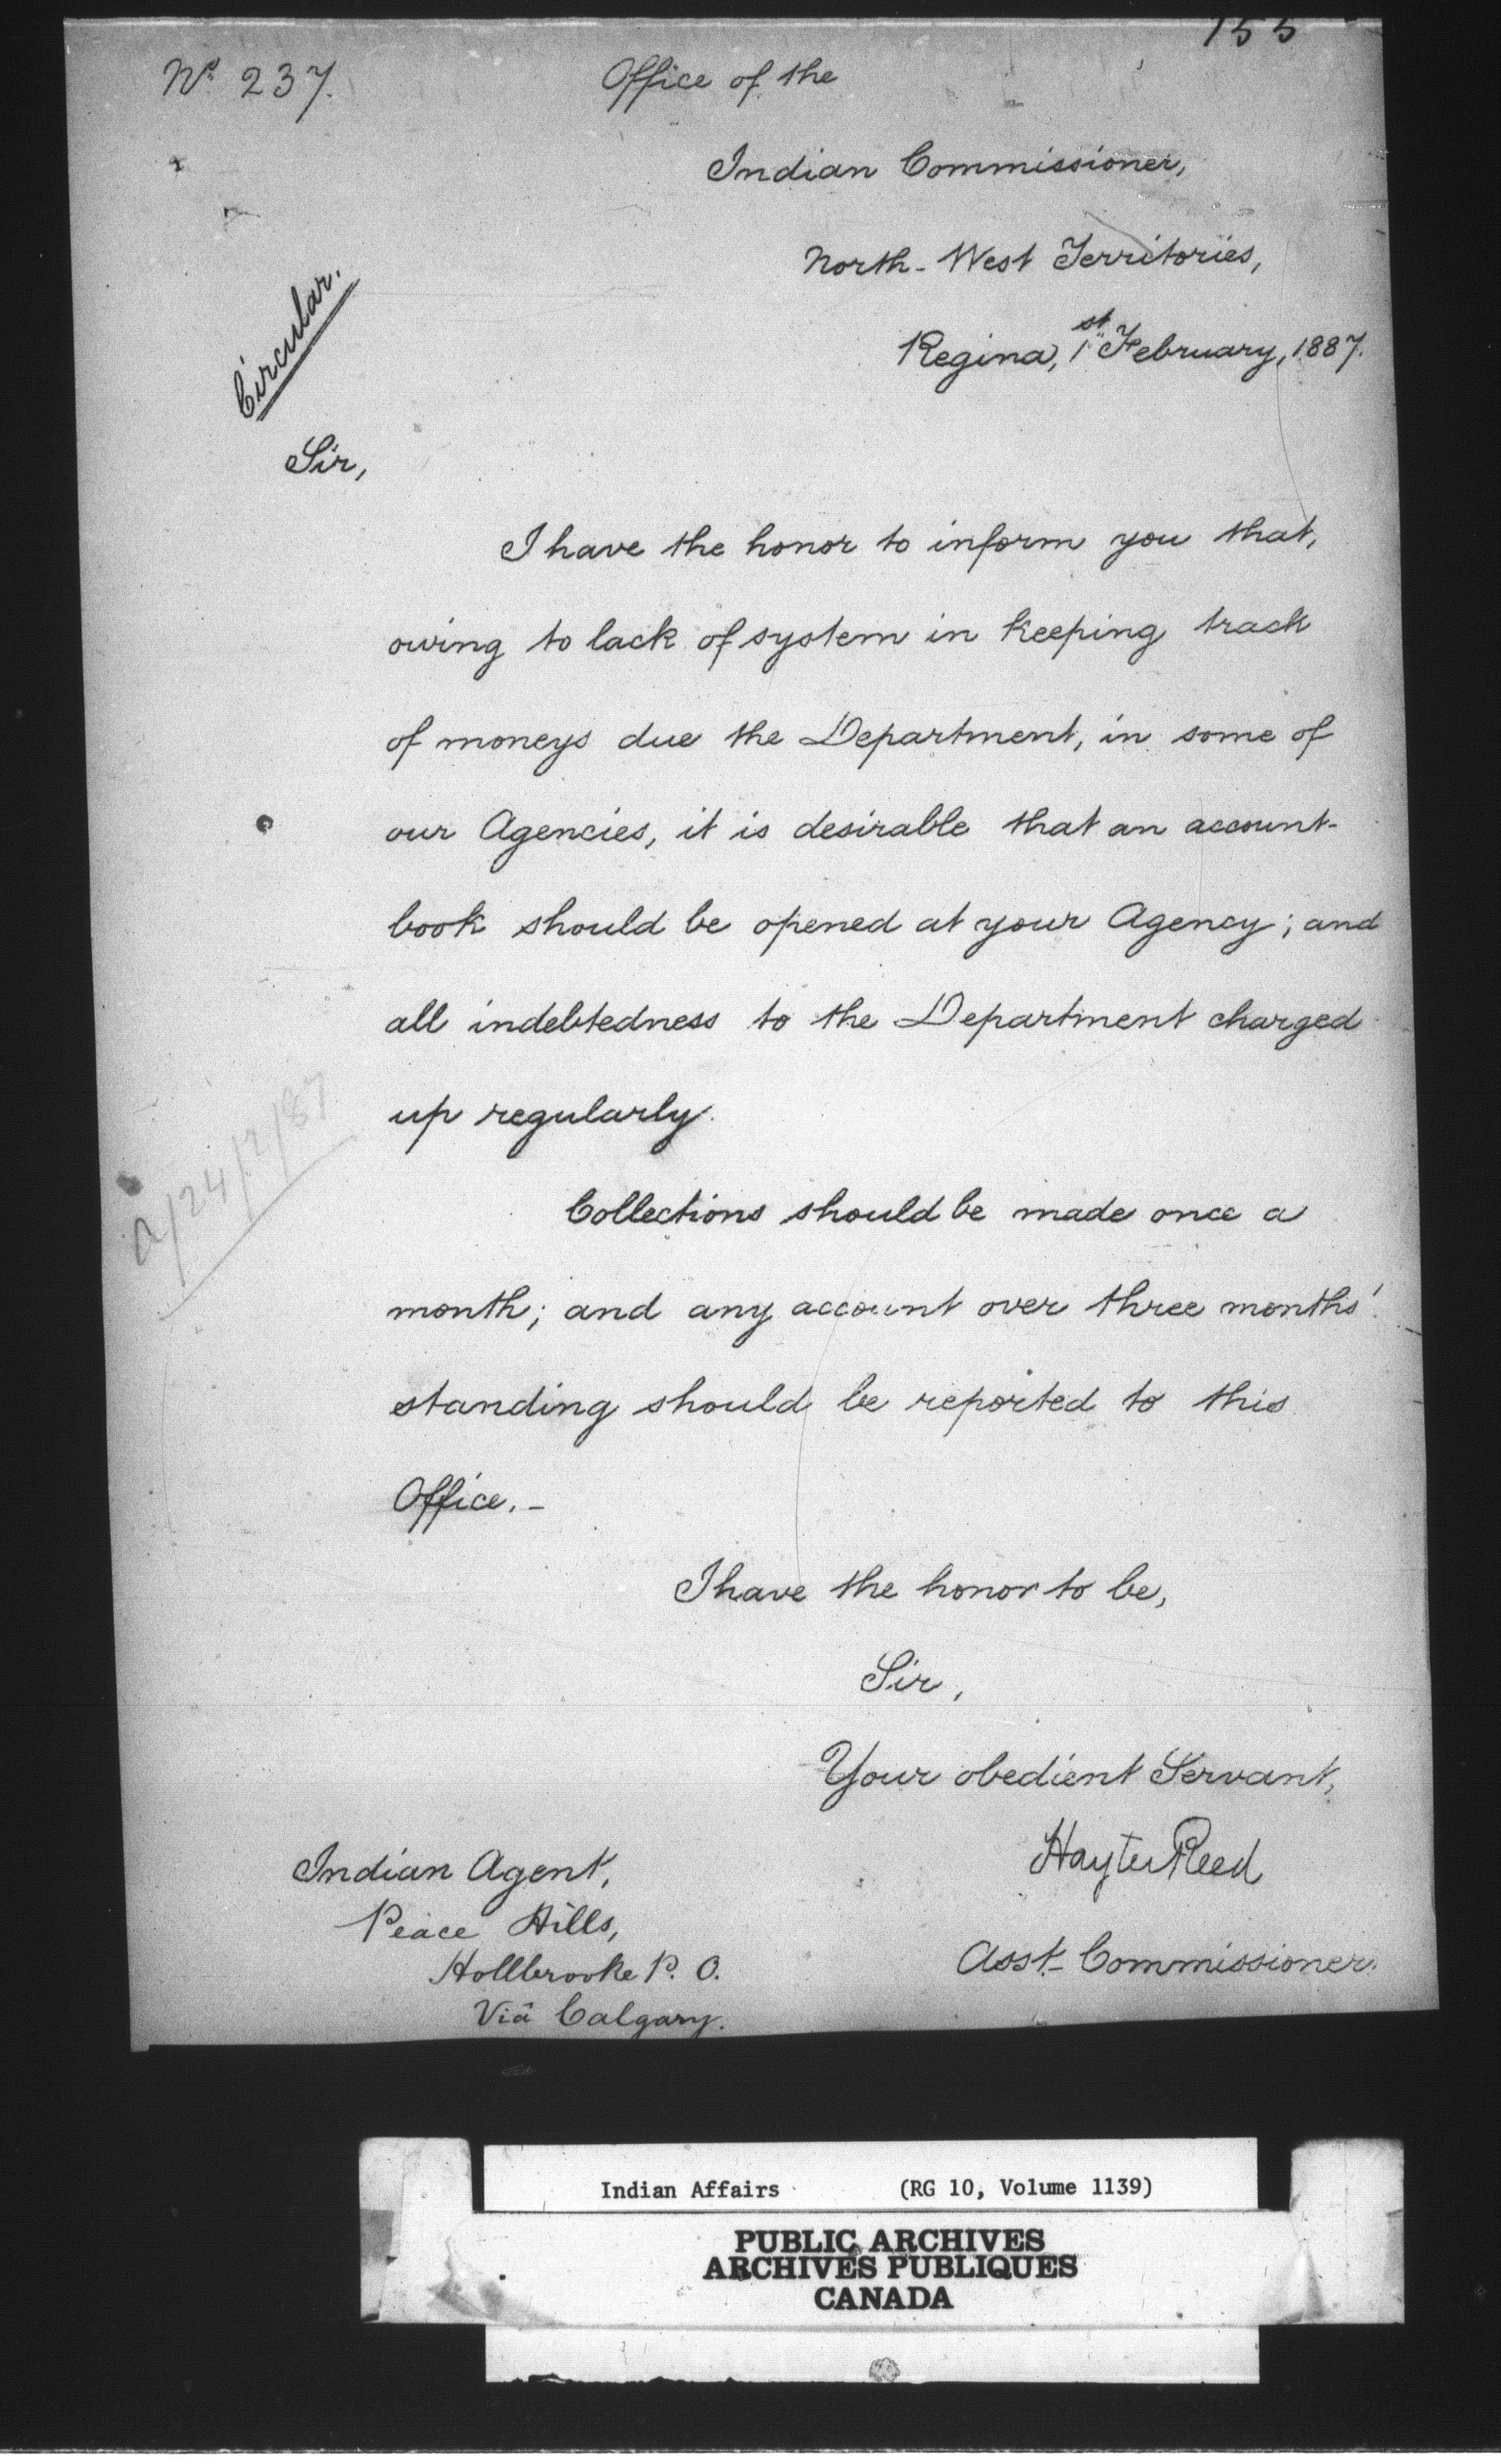 155
No 237.
Office of the
Indian Commissioner,
North-West Territories,
Regina, 1st February, 1887.
Circular.
Sir,
I have the honor to inform you that,
owing to lack of system in keeping track
of moneys due the Department, in some of
our Agencies, it is desirable that an account-
book should be opened at your Agency; and
all indebtedness to the Department charged
up regularly.
Collections should be made once a
month; and any account over three months'
standing should be reported to this
Office.-
a/24/2/87
I have the honor to be,
Sir,
Your obedient Servant,
Hayter Reed
Asst. Commissioner.
Indian Agent,
Peace Hills,
Hollbrooke P. O.
Viâ Calgary.
Indian Affairs (RG 10, Volume 1139)
PUBLIC ARCHIVES
ARCHIVES PUBLIQUES
CANADA